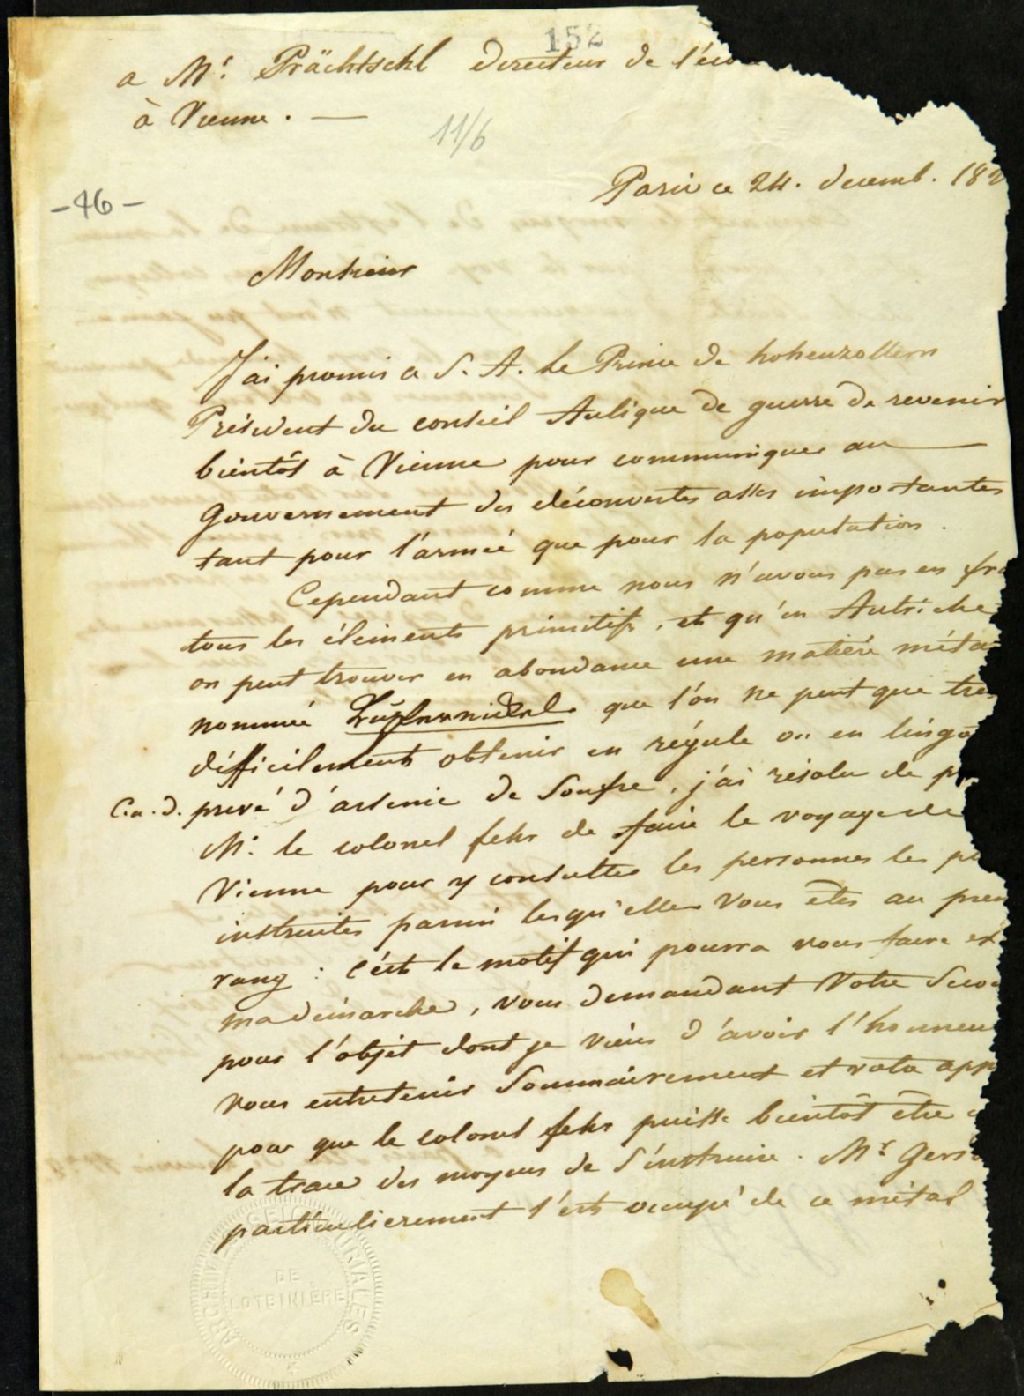 152
a Mr. Prächtschl directeur de l'éco
à Vienne. —
11/6
Paris ce 24. decemb. 182
-46-
Monsieur
J'ai promis a S. A. le Prince de hohenzollern
Président du conseil Aulique de guerre de revenir
bientôt à Vienne pour communiquer au
Gouvernement des découvertes asses importantes
tant pour l'armée que pour la population.
Cependant comme nous n'avons pas en fra
tous les éléments primitifs, et qu'en Autriche
on peut trouver en abondance une matière méta
nommée que l'on ne peut que tres
difficilement obtenir en régule ou en lingo
C.a.d. privé d'arsenic de Soufre, j'ai résolu de p
Mr. le colonel fehr de faire le voyage de
Vienne pour y consulter les personnes les p
instruites parmi lesqu'elles Vous êtes au prem
rang : c'est le motif qui pourra vous faire ex
ma démarche, vous demandant Votre Seco
pour l'objet dont je viens d'avoir l'honneu
vous entretenir Sommairement et votre app
pour que le colonel fehr puisse bientôt être
la trace des moyens de s'instruire. Mr Gers
particulierement s'est occupé de ce métal
ARCHIVES SEIGNEURIALES
DE
LOTBINIÈRE